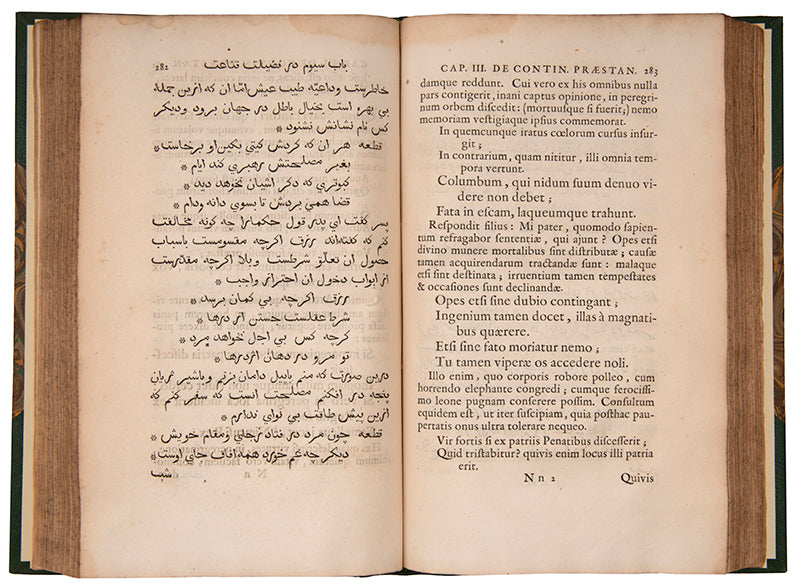 282 باب سیوم در فضیلت قناعت
خاطرست وداعیه طیب عیش امّا ان که ازین جملهٔ
بی بهره است بخیال باطل در جهان برود ودیکر
کس نام نشانش نشنود *
قطعه هر ان که کردش کیتی بکین او برخاست *
بغیر مصلحتش رهبری کند ایام *
کبوتری که دکر اشیان نخوهد دید *
قضا همی بردش تا بسوی دانه ودام *
پسر کفت ای پدر قول حکمارا چه کونه مخالفت
کنم که کفته‌اند رزق اکرچه مقسومست باسباب
حصول ان تعلق شرطست وبلا اکرچه مقدرست
از ابواب دخول ان احتراز واجب *
رزق اکرچه بی کمان برسد *
شرط عقلست جستن از درها *
کرچه کس بی اجل نخواهد مرد *
تو مرو در دهان اژدرها *
درین صورت که منم باپیل دامان بزنم وباشیر غریان
پنجه در افکنم مصلحت انست که سفر کنم که
ازین پیش طاقت بی نوای ندارم *
قطعه چون مرد در فتاد زجای ومقام خویش *
دیکر چه غم خورد همه افاق جای اوست *
شب
CAP. III. DE CONTIN. PRÆSTAN. 283
damque reddunt. Cui vero ex his omnibus nulla
pars contigerit, inani captus opinione, in peregri-
num orbem discedit: (mortuusque si fuerit;) nemo
memoriam vestigiaque ipsius commemorat.
In quemcunque iratus cœlorum cursus insur-
git;
In contrarium, quam nititur, illi omnia tem-
pora vertunt.
Columbum, qui nidum suum denuo vi-
dere non debet;
Fata in escam, laqueumque trahunt.
Respondit filius: Mi pater, quomodo sapien-
tum refragabor sententiæ, qui ajunt? Opes etsi
divino munere mortalibus sint distributæ; causæ
tamen acquirendarum tractandæ sunt: malaque
etsi sint destinata; irruentium tamen tempestates
& occasiones sunt declinandæ.
Opes etsi sine dubio contingant;
Ingenium tamen docet, illas à magnati-
bus quærere.
Etsi sine fato moriatur nemo;
Tu tamen viperæ os accedere noli.
Illo enim, quo corporis robore polleo, cum
horrendo elephante congredi; cumque ferocissi-
mo leone pugnam conserere possim. Consultum
equidem est, ut iter suscipiam, quia posthac pau-
pertatis onus ultra tolerare nequeo.
Vir fortis si ex patriis Penatibus discesserit;
Quid tristabitur? quivis enim locus illi patria
erit.
N n 2 Quivis